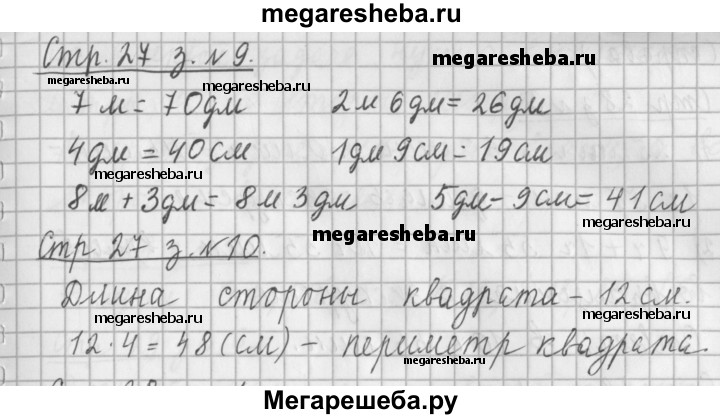 megaresheba.ru
Стр. 27 з. №9. megaresheba.ru
megaresheba.ru megaresheba.ru
7 м = 70 дм 2 м 6 дм = 26 дм
4 дм = 40 см 1 дм 9 см = 19 см
megaresheba.ru
8 м + 3 дм = 8 м 3 дм 5 дм - 9 см = 41 см
megaresheba.ru
Стр. 27 з. №10. megaresheba.ru
Длина стороны квадрата - 12 см.
megaresheba.ru megaresheba.ru
12 · 4 = 48 (см) - периметр квадрата.
megaresheba.ru
Мегарешеба.ру